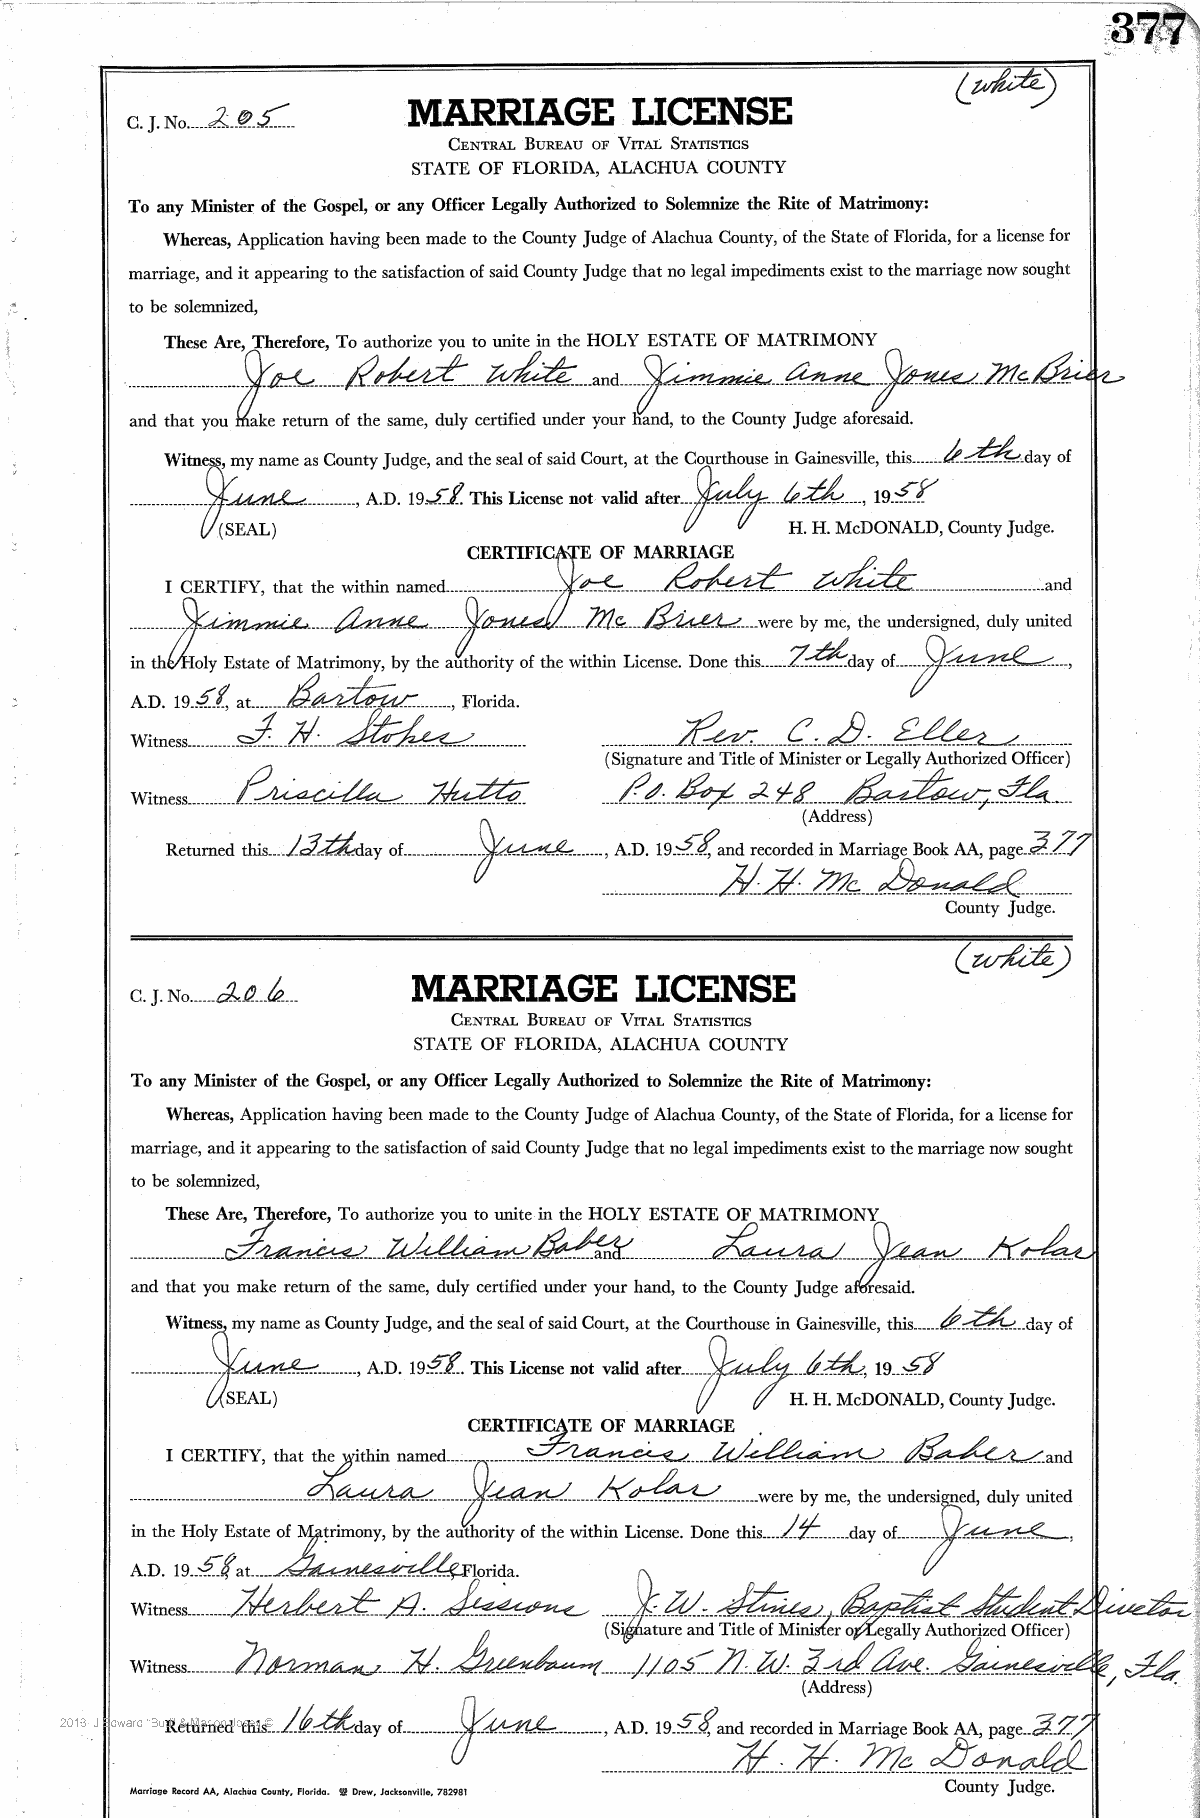 377
(white)
C. J. No. 205
MARRIAGE LICENSE
CENTRAL BUREAU OF VITAL STATISTICS
STATE OF FLORIDA, ALACHUA COUNTY
To any Minister of the Gospel, or any Officer Legally Authorized to Solemnize the Rite of Matrimony:
Whereas, Application having been made to the County Judge of Alachua County, of the State of Florida, for a license for
marriage, and it appearing to the satisfaction of said County Judge that no legal impediments exist to the marriage now sought
to be solemnized,
These Are, Therefore, To authorize you to unite in the HOLY ESTATE OF MATRIMONY
Joe Robert White and Jimmie Anne Jones McBrier
and that you make return of the same, duly certified under your hand, to the County Judge aforesaid.
Witness, my name as County Judge, and the seal of said Court, at the Courthouse in Gainesville, this 6th day of
June, A.D. 1958. This License not valid after July 6th, 1958
(SEAL) H. H. McDONALD, County Judge.
CERTIFICATE OF MARRIAGE
I CERTIFY, that the within named Joe Robert White and
Jimmie Anne Jones Mc Brier were by me, the undersigned, duly united
in the Holy Estate of Matrimony, by the authority of the within License. Done this 7th day of June,
A.D. 1958, at Bartow, Florida.
Witness F. H. Stokes Rev. C. D. Eller
(Signature and Title of Minister or Legally Authorized Officer)
Witness Priscilla Hutto P.O. Box 248 Bartow, Fla.
(Address)
Returned this 13th day of June, A.D. 1958, and recorded in Marriage Book AA, page 377
H. H. Mc Donald
County Judge.
(white)
C. J. No. 206
MARRIAGE LICENSE
CENTRAL BUREAU OF VITAL STATISTICS
STATE OF FLORIDA, ALACHUA COUNTY
To any Minister of the Gospel, or any Officer Legally Authorized to Solemnize the Rite of Matrimony:
Whereas, Application having been made to the County Judge of Alachua County, of the State of Florida, for a license for
marriage, and it appearing to the satisfaction of said County Judge that no legal impediments exist to the marriage now sought
to be solemnized,
These Are, Therefore, To authorize you to unite in the HOLY ESTATE OF MATRIMONY
Francis William Baber and Laura Jean Kolar
and that you make return of the same, duly certified under your hand, to the County Judge aforesaid.
Witness, my name as County Judge, and the seal of said Court, at the Courthouse in Gainesville, this 6th day of
June, A.D. 1958. This License not valid after July 6th, 1958
(SEAL) H. H. McDONALD, County Judge.
CERTIFICATE OF MARRIAGE
I CERTIFY, that the within named Francis William Baber and
Laura Jean Kolar were by me, the undersigned, duly united
in the Holy Estate of Matrimony, by the authority of the within License. Done this 14 day of June,
A.D. 1958, at Gainesville, Florida.
Witness Herbert A. Sessions J. W. Stines, Baptist Student Director
(Signature and Title of Minister or Legally Authorized Officer)
Witness Norman H. Greenbaum 1105 N.W. 3rd Ave. Gainesville, Fla.
(Address)
Returned this 16th day of June, A.D. 1958, and recorded in Marriage Book AA, page 377
H. H. Mc Donald
County Judge.
Marriage Record AA, Alachua County, Florida. Drew, Jacksonville, 782981